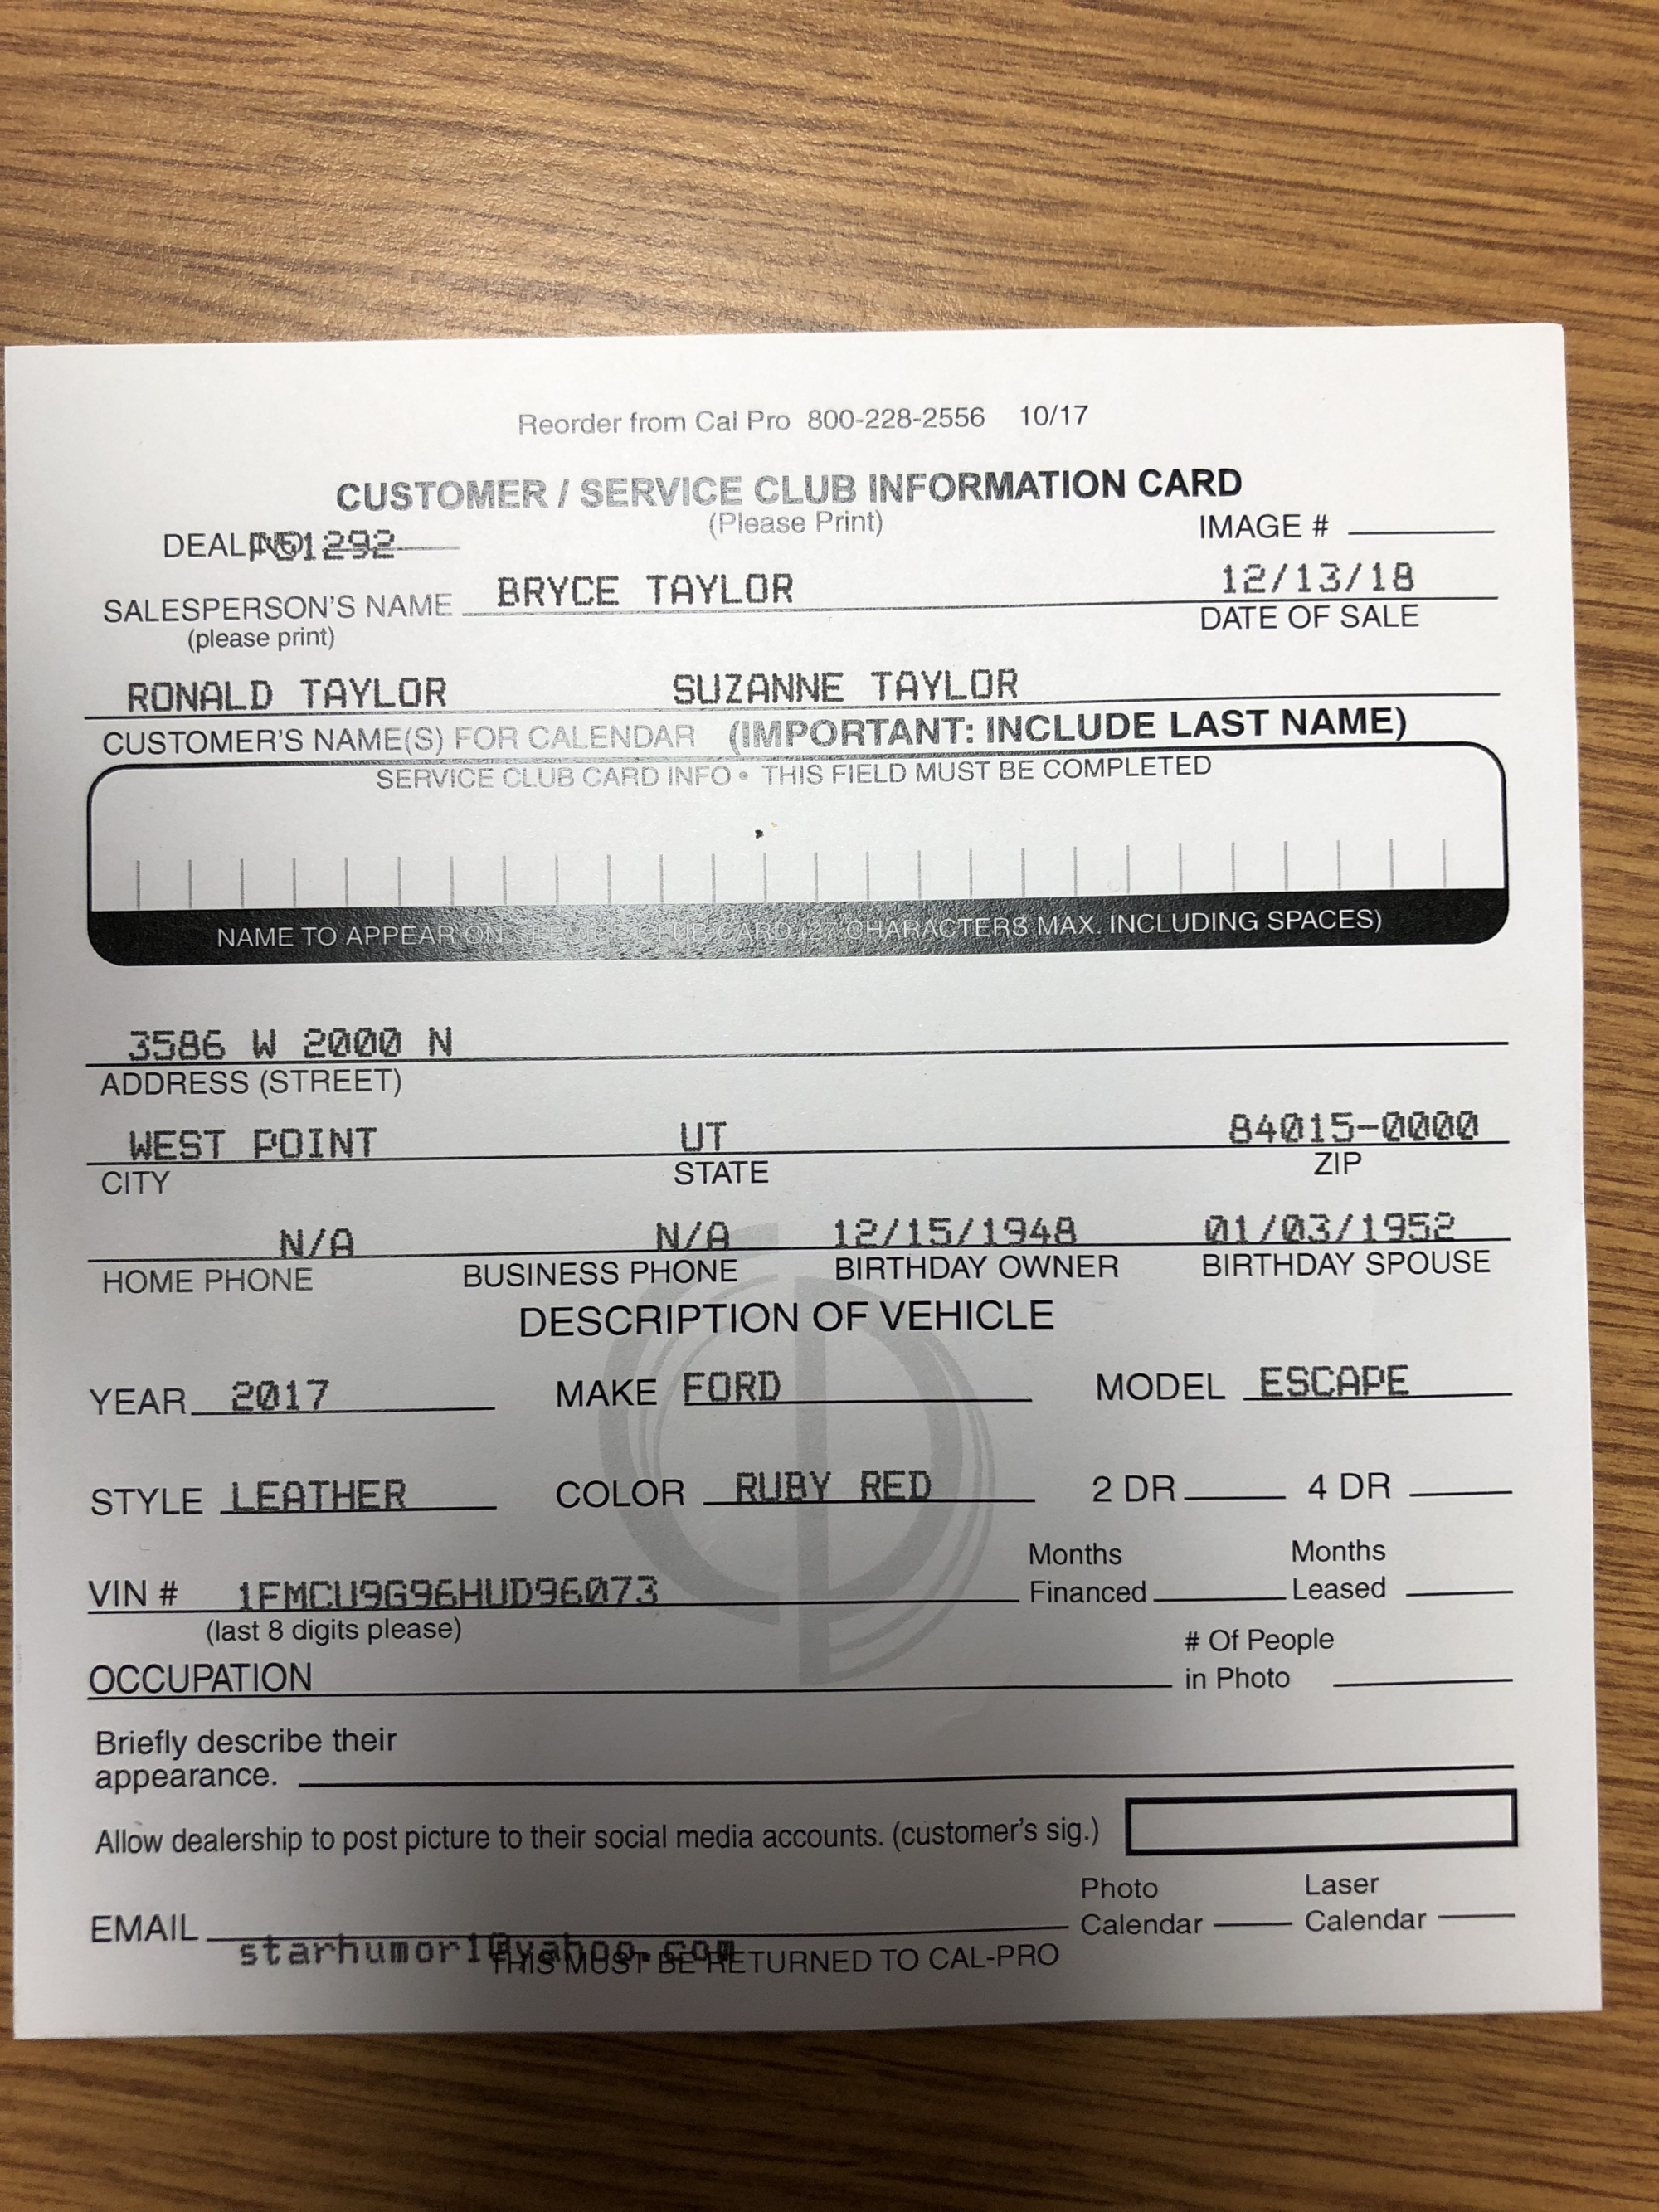 Reorder from Cal Pro 800-228-2556 10/17
CUSTOMER / SERVICE CLUB INFORMATION CARD
(Please Print)
IMAGE #
DEAL 51292
SALESPERSON'S NAME BRYCE TAYLOR 12/13/18
(please print) DATE OF SALE
RONALD TAYLOR SUZANNE TAYLOR
CUSTOMER'S NAME(S) FOR CALENDAR (IMPORTANT: INCLUDE LAST NAME)
SERVICE CLUB CARD INFO • THIS FIELD MUST BE COMPLETED
NAME TO APPEAR ON SERVICE CLUB CARD (27 CHARACTERS MAX. INCLUDING SPACES)
3586 W 2000 N
ADDRESS (STREET)
WEST POINT UT 84015-0000
CITY STATE ZIP
N/A N/A 12/15/1948 01/03/1952
HOME PHONE BUSINESS PHONE BIRTHDAY OWNER BIRTHDAY SPOUSE
DESCRIPTION OF VEHICLE
YEAR 2017 MAKE FORD MODEL ESCAPE
STYLE LEATHER COLOR RUBY RED 2 DR 4 DR
Months Months
VIN # 1FMCU9G96HUD96073 Financed Leased
(last 8 digits please)
# Of People
OCCUPATION in Photo
Briefly describe their
appearance.
Allow dealership to post picture to their social media accounts. (customer's sig.)
Photo Laser
EMAIL Calendar Calendar
starhumor1@yahoo.com
THIS MUST BE RETURNED TO CAL-PRO